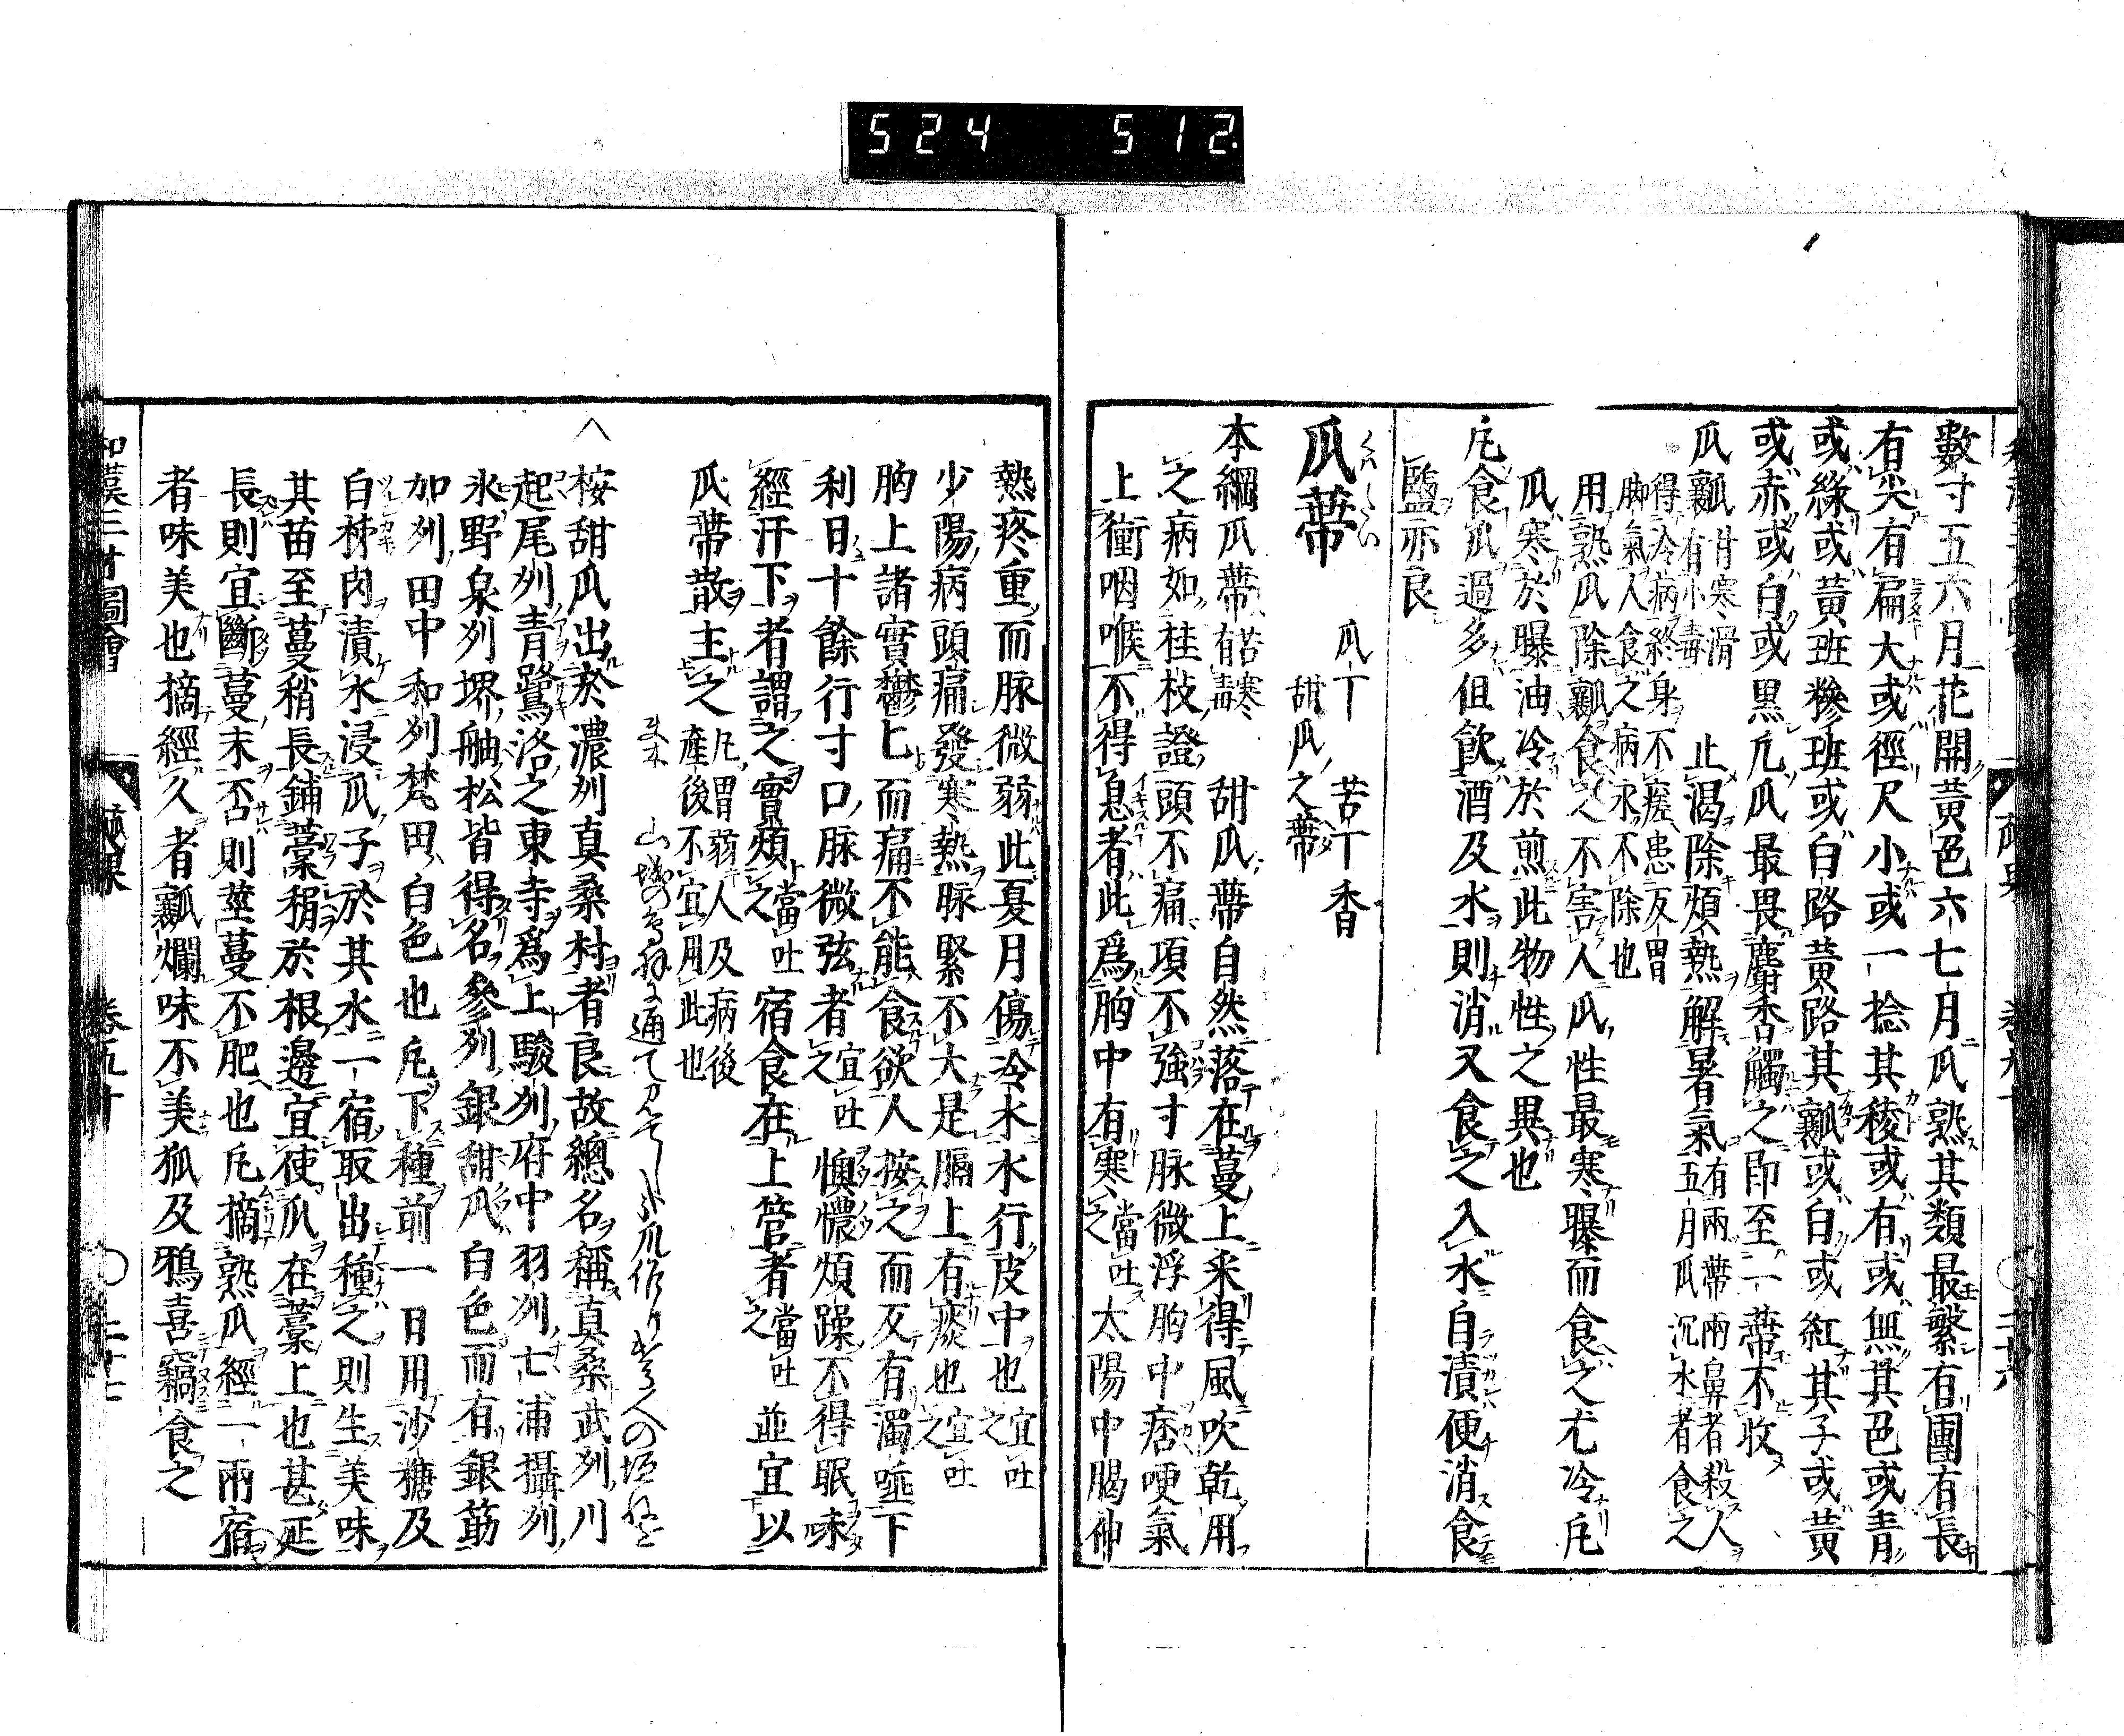 524 512.
數寸五六月花開黃色六七月瓜熟其類最繁有團有長
有尖有扁大或徑尺小或一捻其稜或有或無其色或青
或綠或黃班糝班或白路黃路其瓤或白或紅其子或黃
或赤或白或黑凡瓜最畏麝香觸之卽至一蒂不收
瓜瓤 甘寒滑有小毒 止渴除煩熱解暑氣 有兩蒂兩鼻者殺人五月瓜沉水者食之
得冷病終身不瘥患反胃
脚氣人食之病永不除也
用熟瓜除瓤食之不害人瓜性最寒曝而食之尤冷凡
瓜寒於曝油冷於煎此物性之異也
凡食瓜過多但飲酒及水則消又食之入水自漬便消食
鹽亦良
瓜蒂 くはくはのへた
瓜丁 苦丁香
甜瓜之蒂
本綱瓜蒂 苦寒有毒 甜瓜蒂自然落在蔓上采得風吹乾用
之病如桂枝證頭不痛項不強寸脉微浮胸中痞哽氣
上衝咽喉不得息者此爲胸中有寒 當吐之 太陽中暍神
熱疼重而脉微弱此夏月傷冷水水行皮中也 宜吐之
少陽病頭痛發寒熱脉緊不大是膈上有痰也 宜吐之
胸上諸實鬱匕而痛不能食欲人按之而反有濁唾下
利日十餘行寸口脉微弦者 宜吐之 懊憹煩躁不得眠味
經汗下者謂之實煩 當吐之 宿食在上管者 當吐之 並宜以
瓜蒂散主之 凡胃弱人及病後產後不宜用此也
桉甜瓜出於濃州真桑村者良故總名稱真桑武州川
起尾州青鷺洛之東寺爲上駿州府中羽州七浦攝州
氷野泉州堺舳松皆得名參州銀甜瓜白色而有銀筋
加州田中和州梵田白色也凡下種前一日用沙糖及
白柹肉漬水浸瓜子於其水一宿取出種之則生美味
其苗至蔓稍長鋪藁稍於根邊宜使瓜在藁上也甚延
長則宜斷蔓末否則莖蔓不肥也凡摘熟瓜經一兩宿
者味美也摘經久者瓤爛味不美狐及鴉喜竊食之
和漢三才圖會 蓏果 卷九十 〇 二十七